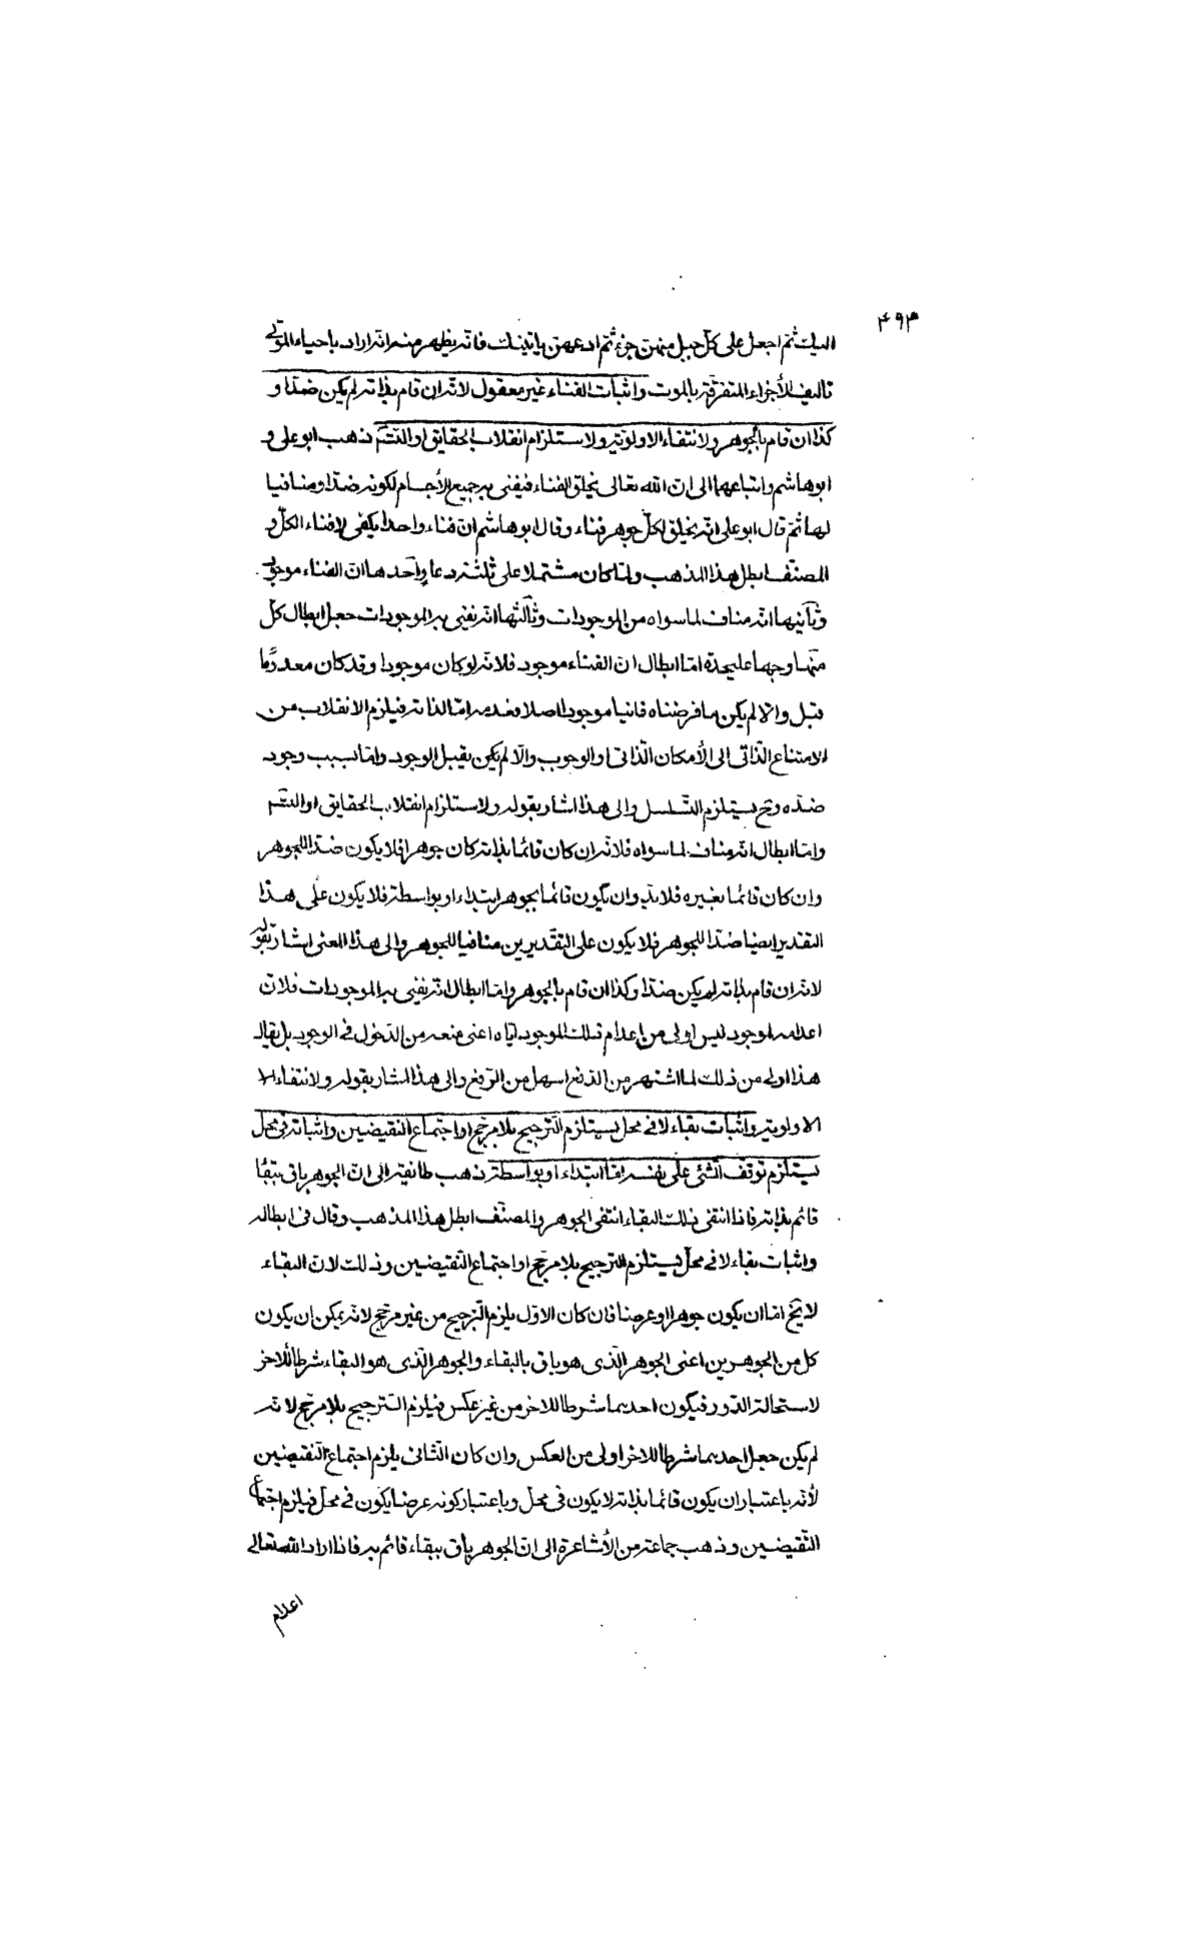 ۴۹۳
اليك ثم اجعل على كل جبل منهن جزء ثم ادعهن ياتينك فانه يظهر منه انه اراد باحياء الموتى
تاليف الأجزاء المتفرقة بالموت واثبات الفناء غير معقول لانه ان قام بذاته لم يكن ضدا و
كذا ان قام بالجوهر ولانتفاء الاولوية ولاستلزام انقلاب الحقايق او التتم ذهب ابو على و
ابو هاشم واتباعهما الى ان الله تعالى يخلق الفناء فيفنى به جميع الأجسام لكونه ضدا ومنافيا
لها ثم قال ابو على انه يخلق لكل جوهر فناء وقال ابو هاشم ان فناء واحدا يكفى لافناء الكل و
المصنف ابطل هذا المذهب ولما كان مشتملا على ثلثة دعاو احدها ان الفناء موجود
وثانيها انه مناف لما سواه من الموجودات وثالثها انه يفنى به الموجودات جعل ابطال كل
منها وجها عليحدة اما ابطال ان الفناء موجود فلانه لو كان موجودا وقد كان معدوما
قبل والا لم يكن ما فرضناه فانيا موجودا اصلا فعدمه اما لذاته فيلزم الانقلاب من
الامتناع الذاتى الى الأمكان الذاتى او الوجوب والا لم يكن يقبل الوجود واما بسبب وجود
ضده وح يستلزم التسلسل والى هذا اشار بقوله ولاستلزام انقلاب الحقايق او التتم
واما ابطال انه مناف لما سواه فلانه ان كان قائما بذاته كان جوهرا فلا يكون ضدا للجوهر
وان كان قائما بغيره فلابد وان يكون قائما بجوهر ابتداء او بواسطة فلا يكون على هذا
التقدير ايضا ضدا للجوهر فلا يكون على التقديرين منافيا للجوهر والى هذا المعنى اشار بقوله
لانه ان قام بذاته لم يكن ضدا وكذا ان قام بالجوهر واما ابطال انه يفنى به الموجودات فلان
اعدامه لموجود ليس اولى من اعدام ذلك الموجود اياه اعنى منعه من الدخول فى الوجود بل يقال
هذا اولى من ذلك لما اشتهر من الدفع اسهل من الرفع والى هذا اشار بقوله ولانتفاء الا
الاولوية واثبات بقاء لا فى محل يستلزم الترجيح بلا مرجح او اجتماع النقيضين واثباته فى محل
يستلزم توقف الشئ على نفسه اما ابتداء او بواسطة ذهب طائفة الى ان الجوهر باق ببقاء
قائم بذاته فاذا انتفى ذلك البقاء انتفى الجوهر والمصنف ابطل هذا المذهب وقال فى ابطاله
واثبات بقاء لا فى محل يستلزم الترجيح بلا مرجح او اجتماع النقيضين وذلك لان البقاء
لا يخ اما ان يكون جوهرا او عرضا فان كان الاول يلزم الترجيح من غير مرجح لانه يمكن ان يكون
كل من الجوهرين اعنى الجوهر الذى هو باق بالبقاء والجوهر الذى هو البقاء شرطا للاخر
لاستحالة الدور فيكون احدهما شرطا للاخر من غير عكس فيلزم الترجيح بلا مرجح لانه
لم يكن جعل احدهما شرطا للاخر اولى من العكس وان كان الثانى يلزم اجتماع النقيضين
لأنه باعتبار ان يكون قائما بذاته لا يكون فى محل وباعتبار كونه عرضا يكون فى محل فيلزم اجتماع
النقيضين وذهب جماعة من الأشاعرة الى ان الجوهر باق ببقاء قائم به فاذا اراد الله تعالى
اعدام